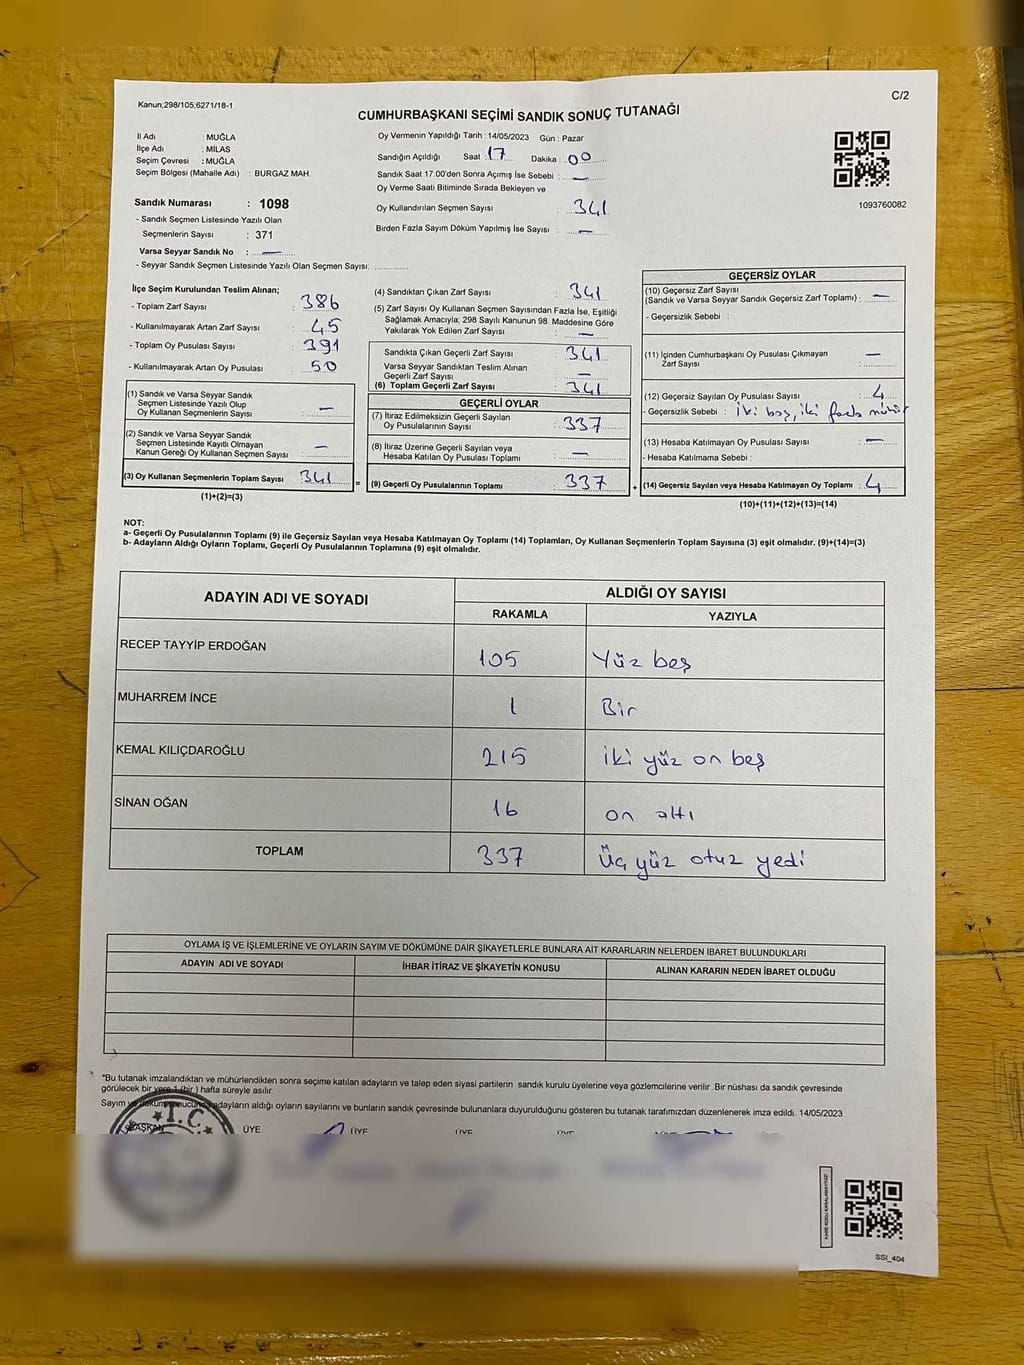 Kanun;298/105;6271/18-1
C/2
CUMHURBAŞKANI SEÇİMİ SANDIK SONUÇ TUTANAĞI
İl Adı : MUĞLA
İlçe Adı : MİLAS
Seçim Çevresi : MUĞLA
Seçim Bölgesi (Mahalle Adı) : BURGAZ MAH.
Sandık Numarası : 1098
- Sandık Seçmen Listesinde Yazılı Olan
Seçmenlerin Sayısı : 371
Varsa Seyyar Sandık No : —
- Seyyar Sandık Seçmen Listesinde Yazılı Olan Seçmen Sayısı: ............
Oy Vermenin Yapıldığı Tarih : 14/05/2023 Gün : Pazar
Sandığın Açıldığı Saat : 17 Dakika : 00
Sandık Saat 17.00'den Sonra Açımış İse Sebebi : —
Oy Verme Saati Bitiminde Sırada Bekleyen ve
Oy Kullandırılan Seçmen Sayısı : 341
Birden Fazla Sayım Döküm Yapılmış İse Sayısı : —
1093760082
İlçe Seçim Kurulundan Teslim Alınan;
- Toplam Zarf Sayısı : 386
- Kullanılmayarak Artan Zarf Sayısı : 45
- Toplam Oy Pusulası Sayısı : 391
- Kullanılmayarak Artan Oy Pusulası : 50
(1) Sandık ve Varsa Seyyar Sandık
Seçmen Listesinde Yazılı Olup
Oy Kullanan Seçmenlerin Sayısı : —
(2) Sandık ve Varsa Seyyar Sandık
Seçmen Listesinde Kayıtlı Olmayan
Kanun Gereği Oy Kullanan Seçmen Sayısı : —
(3) Oy Kullanan Seçmenlerin Toplam Sayısı : 341 =
(1)+(2)=(3)
(4) Sandıktan Çıkan Zarf Sayısı : 341
(5) Zarf Sayısı Oy Kullanan Seçmen Sayısından Fazla İse, Eşitliği
Sağlamak Amacıyla; 298 Sayılı Kanunun 98. Maddesine Göre
Yakılarak Yok Edilen Zarf Sayısı : —
Sandıkta Çıkan Geçerli Zarf Sayısı : 341
Varsa Seyyar Sandıktan Teslim Alınan
Geçerli Zarf Sayısı : —
(6) Toplam Geçerli Zarf Sayısı : 341
GEÇERLİ OYLAR
(7) İtiraz Edilmeksizin Geçerli Sayılan
Oy Pusulalarının Sayısı : 337
(8) İtiraz Üzerine Geçerli Sayılan veya
Hesaba Katılan Oy Pusulası Toplamı : —
(9) Geçerli Oy Pusulalarının Toplamı : 337 +
GEÇERSİZ OYLAR
(10) Geçersiz Zarf Sayısı
(Sandık ve Varsa Seyyar Sandık Geçersiz Zarf Toplamı) : —
- Geçersizlik Sebebi :
(11) İçinden Cumhurbaşkanı Oy Pusulası Çıkmayan
Zarf Sayısı : —
(12) Geçersiz Sayılan Oy Pusulası Sayısı : 4
- Geçersizlik Sebebi : iki boş, iki fazla mühür
(13) Hesaba Katılmayan Oy Pusulası Sayısı : —
- Hesaba Katılmama Sebebi :
(14) Geçersiz Sayılan veya Hesaba Katılmayan Oy Toplamı : 4
(10)+(11)+(12)+(13)=(14)
NOT:
a- Geçerli Oy Pusulalarının Toplamı (9) ile Geçersiz Sayılan veya Hesaba Katılmayan Oy Toplamı (14) Toplamları, Oy Kullanan Seçmenlerin Toplam Sayısına (3) eşit olmalıdır. (9)+(14)=(3)
b- Adayların Aldığı Oyların Toplamı, Geçerli Oy Pusulalarının Toplamına (9) eşit olmalıdır.
ADAYIN ADI VE SOYADI ALDIĞI OY SAYISI
RAKAMLA YAZIYLA
RECEP TAYYİP ERDOĞAN 105 Yüz beş
MUHARREM İNCE 1 Bir
KEMAL KILIÇDAROĞLU 215 iki yüz on beş
SİNAN OĞAN 16 on altı
TOPLAM 337 Üç yüz otuz yedi
OYLAMA İŞ VE İŞLEMLERİNE VE OYLARIN SAYIM VE DÖKÜMÜNE DAİR ŞİKAYETLERLE BUNLARA AİT KARARLARIN NELERDEN İBARET BULUNDUKLARI
ADAYIN ADI VE SOYADI İHBAR İTİRAZ VE ŞİKAYETİN KONUSU ALINAN KARARIN NEDEN İBARET OLDUĞU
*Bu tutanak imzalandıktan ve mühürlendikten sonra seçime katılan adayların ve talep eden siyasi partilerin sandık kurulu üyelerine veya gözlemcilerine verilir. Bir nüshası da sandık çevresinde
görülecek bir yere 1 (bir ) hafta süreyle asılır.
Sayım ve döküm sonucunda adayların aldığı oyların sayılarını ve bunların sandık çevresinde bulunanlara duyurulduğunu gösteren bu tutanak tarafımızdan düzenlenerek imza edildi. 14/05/2023
T.C.
BAŞKAN ÜYE ÜYE ÜYE
SSI_404